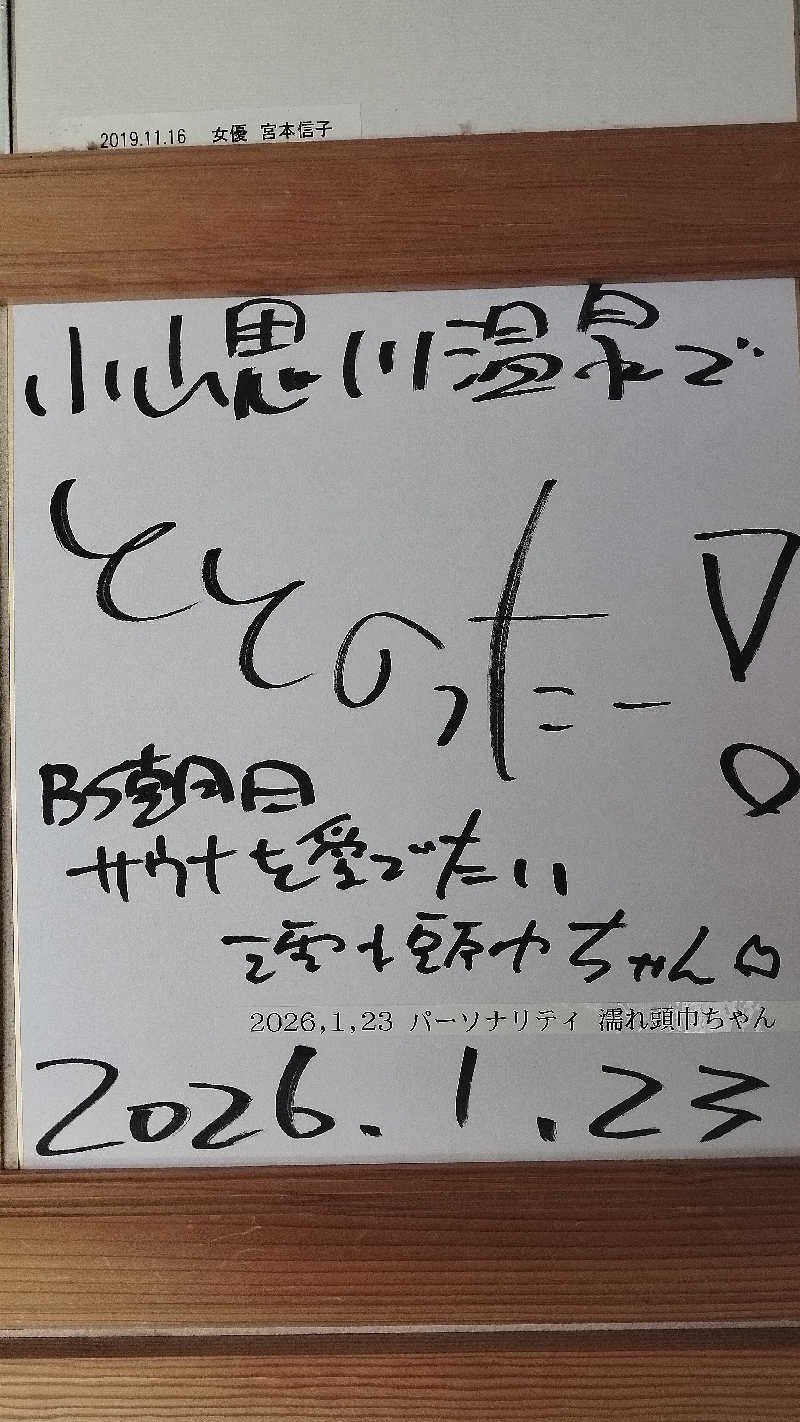 2019.11.16 女優 宮本信子
小山思川温泉で
ととのったー!
BS朝日
サウナを愛でたい
濡れ頭巾ちゃん
2026,1,23 パーソナリティ 濡れ頭巾ちゃん
2026.1.23